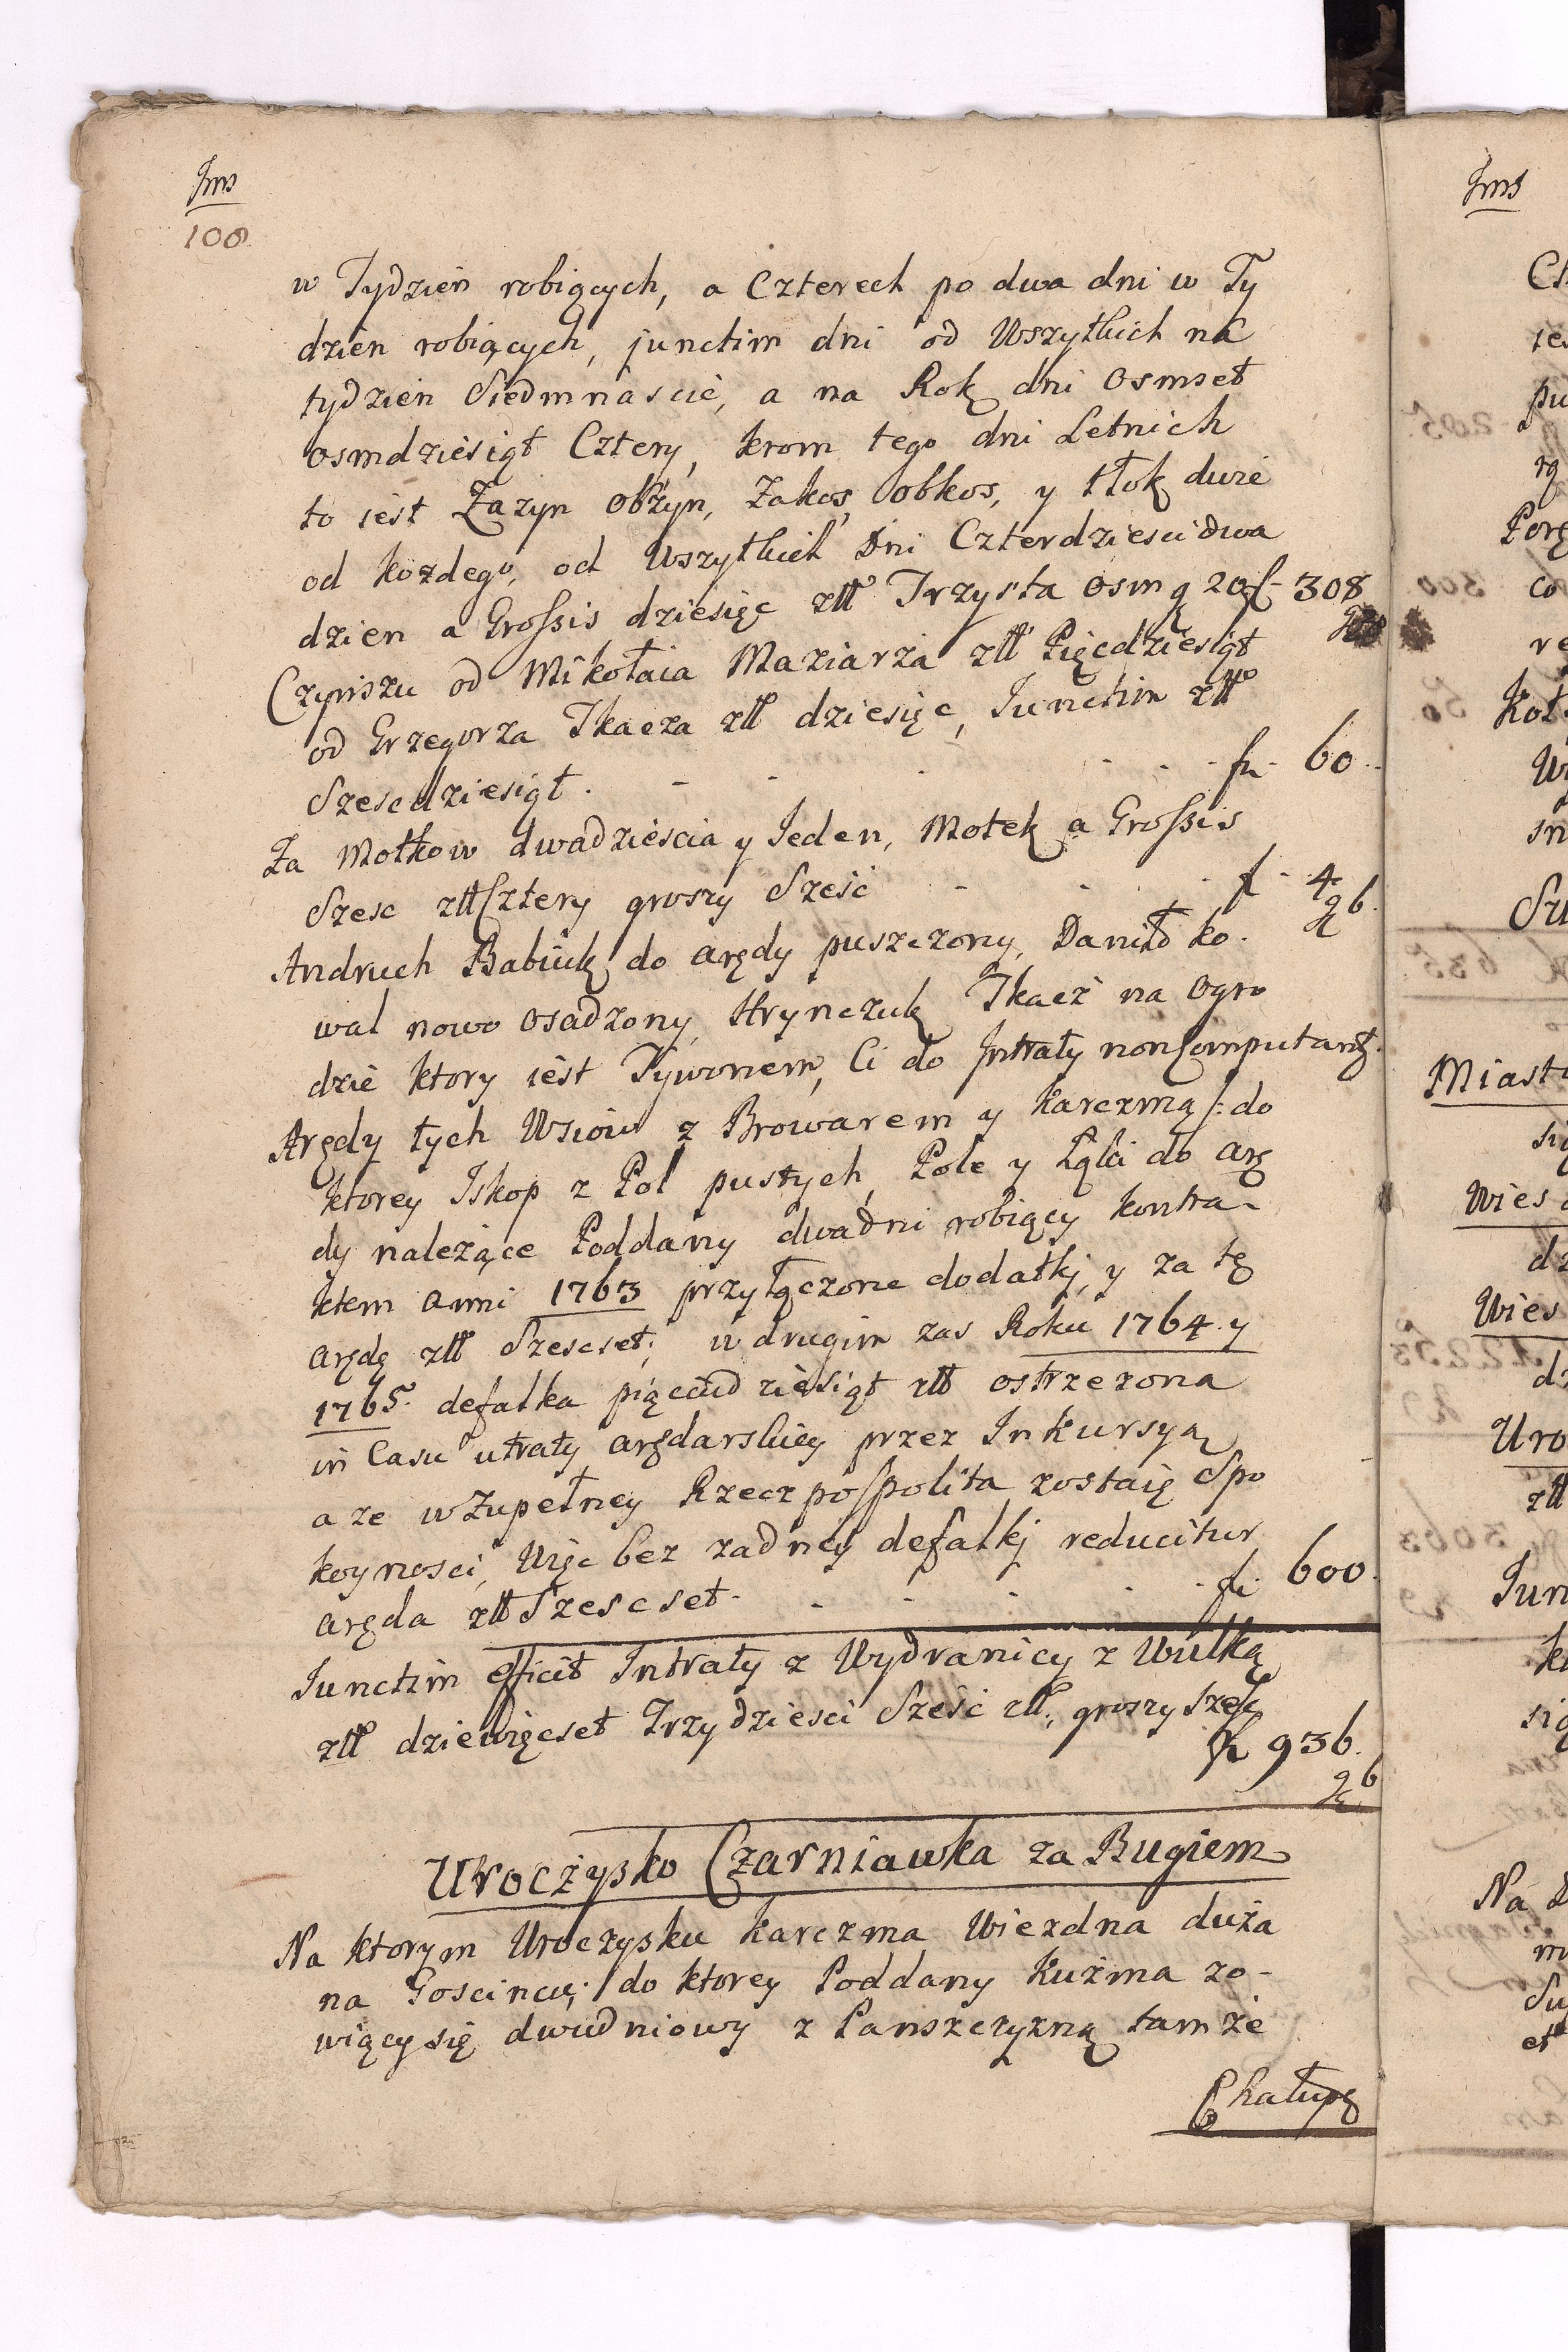 Jms
108
w Tydzien robiących, a Czterech po dwa dni w Ty
dzien robiących, junctim dni od Wszytkich na
tydzien Siedmnascie, a na Rok dni Osmset
osmdziesiąt Cztery, krom tego dni Letnich
to iest Zazyn obżyn, Zakos, obkos, y tłok dwie
od kozdego, od Wszytkich Dni Czterdziesci dwa
dzien a Grossis dziesięc złł Trzysta osm g 20 f 308
Czynszu od Mikołaia Maziarza złł Pięcdziesiąt
od Grzegorza Tkacza złł dziesięc, Junctim złł
Szescdziesiąt. - - - - - fl. 60.
Za Motkow dwadziescia y Jeden, Motek a Grossis
Szesc złł Cztery groszy Szesć - - - f. 4.
g 6.
Andruch Babiuk do arędy puszczony, Daniło ko.
wal nowo osadzony, Hrynczuk Tkacz na ogro
dzie ktory iest Tywonem, Ci do Intraty non Computantr.
Arędy tych Wsiow z Browarem y karczmą /: do
ktorey Iskop z Pol pustych, Pole y Łąki do arę
dy nalezące Poddany dwadni robiący kontra-
ktem anni 1763 przyłączone dodatki, y za tę
arędę złł Szescset; w drugim zas Roku 1764. y
1765. defalka pięcudziesiąt złł ostrzezona
in Casu utraty arędarskiey przez Inkursyą
a ze w Zupełney Rzeczpospolita zostaię Spo
koynosci, Więc bez zadney defalki reducitur
aręda złł Szescset. - - - - - fl. 600.
Junctim efficit Intraty z Wydranicy z Wulką
złł dziewięcset Trzydziesci Szesć złł, groszy Szesc
fl 936.
g 6
Uroczysko Czarniawka za Bugiem
Na ktorym Uroczysku karczma Wiezdna duża
na Goscincu; do ktorey Poddany Kuźma zo-
wiący się dwudniowy z Panszczyzną tamże
Chałupę
Jms
Porę
co
Miast
Wies
Wies
Uro
złł
Jun
Na